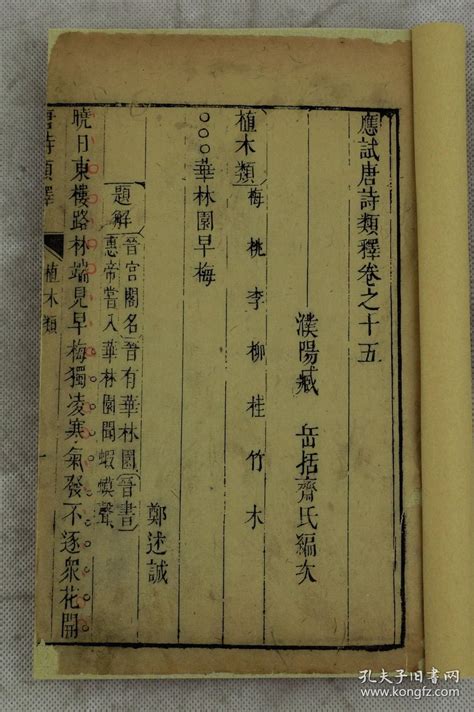 應試唐詩類釋卷之十五
濮陽臧 岳括齋氏編次
植木類
梅 桃 李 柳 桂 竹 木
○○○華林園早梅
鄭述誠
題解 晉宫閣名晉有華林園 晉書
惠帝嘗入華林園聞蝦蟆聲
曉日東樓路林端見早梅獨凌寒氣發不逐衆花開
唐詩類釋
植木類
孔夫子旧书网
www.kongfz.com